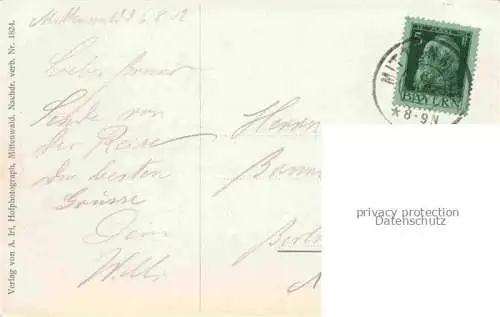 Mittenwald 6.8.12
Lieber
Sende von
der Reise
die besten
Grüsse
Dein
Willi
Herrn
Berlin
Verlag von A. Irl, Hofphotograph, Mittenwald. Nachdr. verb. Nr. 1824.
5
BAYERN
MIT
*8-9N
privacy protection
Datenschutz